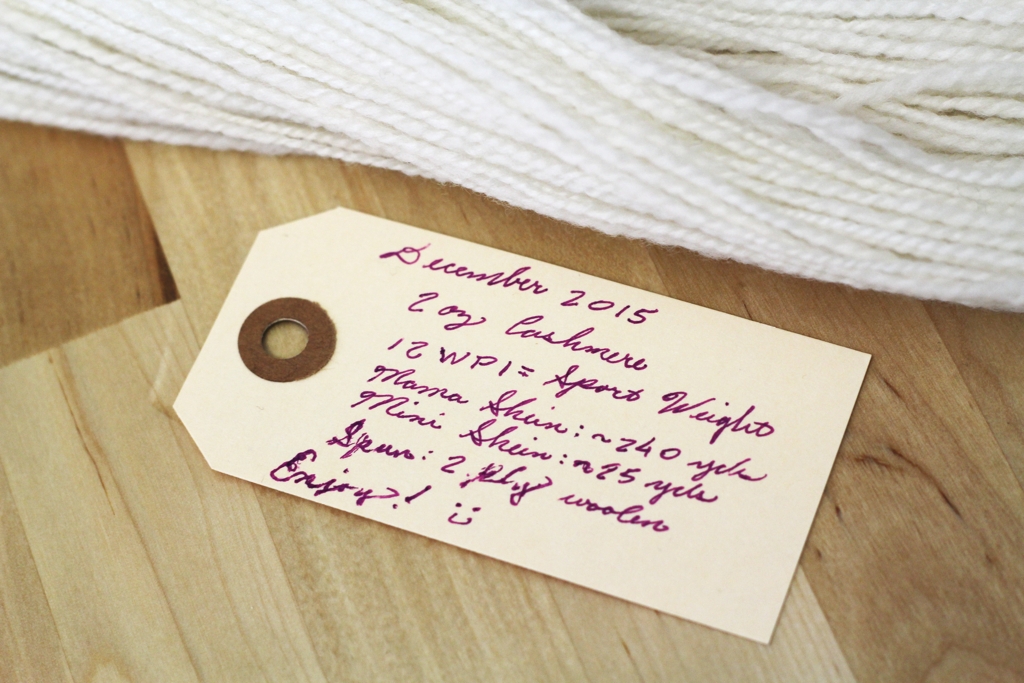 December 2015
2 oz Cashmere
12 WPI = Sport Weight
Mama Skein: ~240 yds
Mini Skein: ~25 yds
Spun: 2 Ply woolen
Enjoy! :)